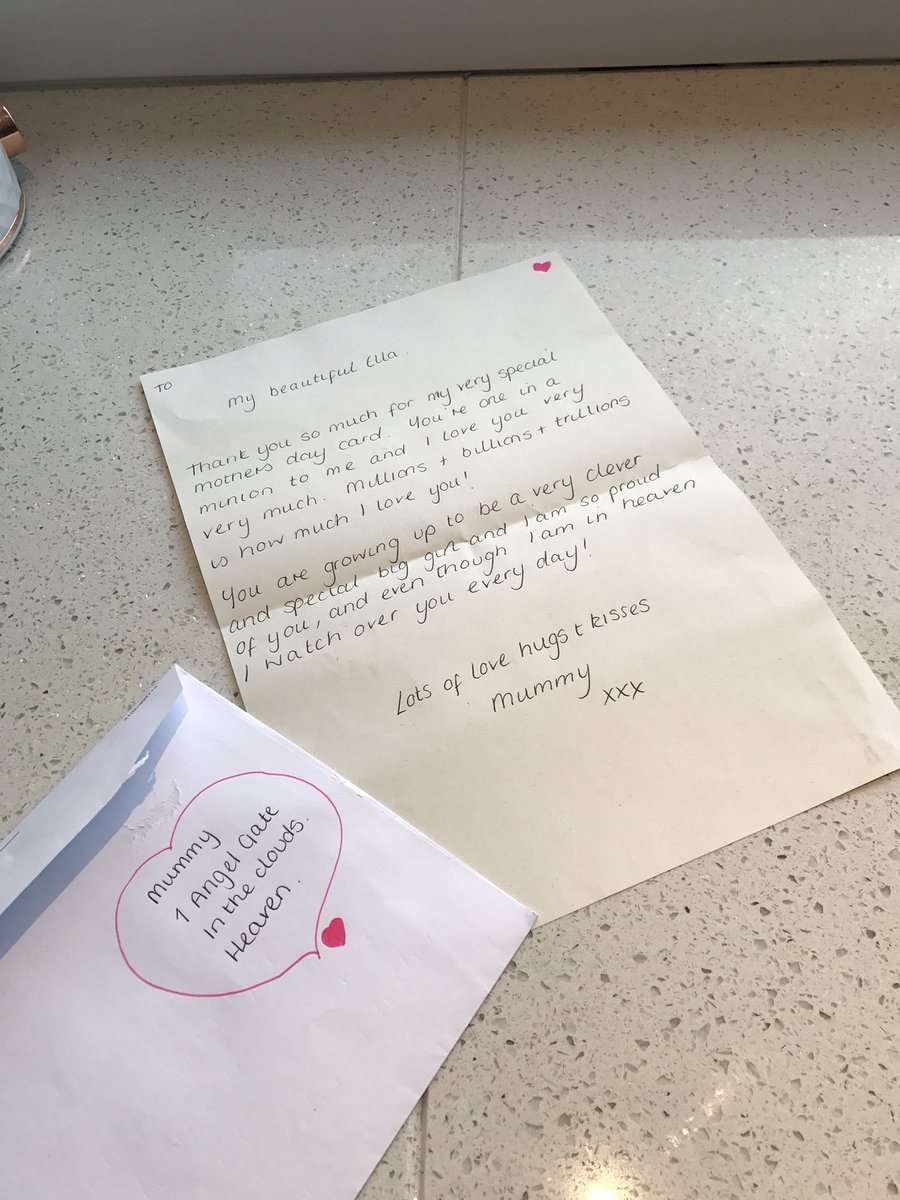 TO
My beautiful Ella.
Thank you so much for my very special
mothers day card. You're one in a
minion to me and I love you very
very much. Millions + billions + trillions
is how much I love you!
You are growing up to be a very clever
and special big girl and I am so proud
of you, and even though I am in heaven
I watch over you every day!
Lots of love hugs + kisses
Mummy xxx
Mummy
1 Angel Gate
In the clouds.
Heaven.